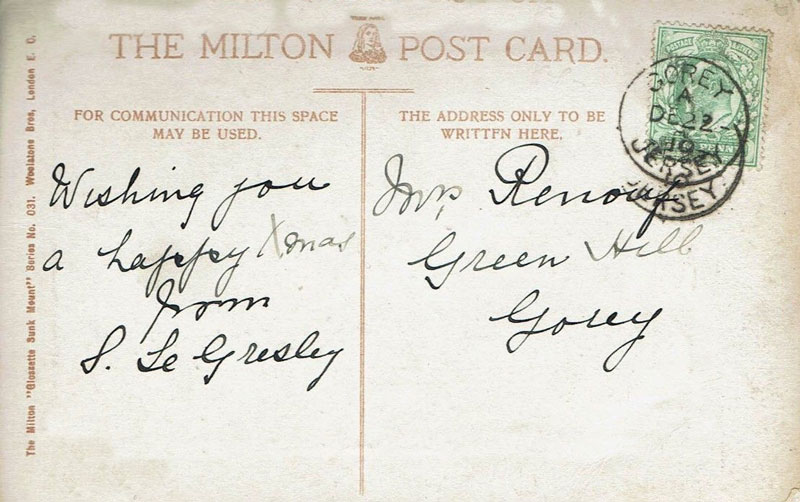 THE MILTON POST CARD.
FOR COMMUNICATION THIS SPACE
MAY BE USED.
THE ADDRESS ONLY TO BE
WRITTFN HERE.
Wishing you
a happy Xmas
from
S. Le Gresley
Mrs Renouf
Green Hill
Gorey
POSTAGE
PENN
GOREY
A
DE 22
JERSEY
JERSEY.
The Milton "Glossette Sunk Mount" Series No. 031. Woolstone Bros, London E. C.